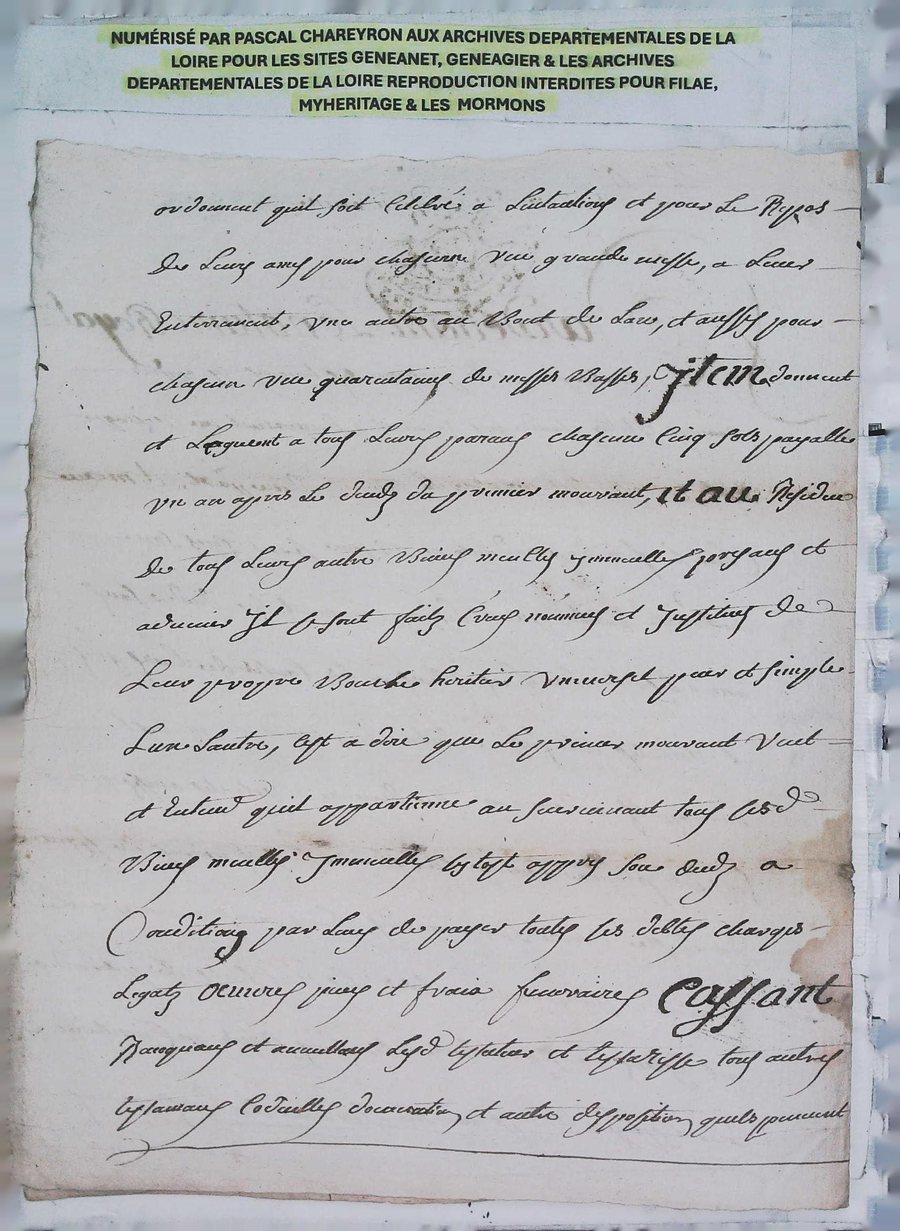 NUMÉRISÉ PAR PASCAL CHAREYRON AUX ARCHIVES DEPARTEMENTALES DE LA
LOIRE POUR LES SITES GENEANET, GENEAGIER & LES ARCHIVES
DEPARTEMENTALES DE LA LOIRE REPRODUCTION INTERDITES POUR FILAE,
MYHERITAGE & LES MORMONS
ordonnent quil soit Celebré a Lintantions et pour Le Repos
De Leurs ames pour chascune vne grande messe, a Leur
Enterrement, vne autre au Bout de Lan, et aussy pour
chascun vne quarentaine de messes Basses, Jtem donnent
et Leguent a tous Leurs parans chascune Cinq sols payable
vn an appres Le decedz du premier mourant, et au Residue
De tous Leurs autre Biens meubles ymmeubles presans et
advenir Jl se sont faitz Crées nommés et Justitues de
Leur propre Bouche heritier vniversel pur et simple
Lun Lautre, cest a dire que Le premier mourant veut
et Entend quil appartienne au survivant tous sesd
Biens meubles ymmeubles tost appres son decedz a
Conditions par Luy de payer toutes ses debtes charges
Legatz oeuvres pies et frais funeraires Cassant
Revoquans et annullans Lesd testateur et testatrisse tous autres
testamans Codicilles donnation, et autre disposition, quils peuvent